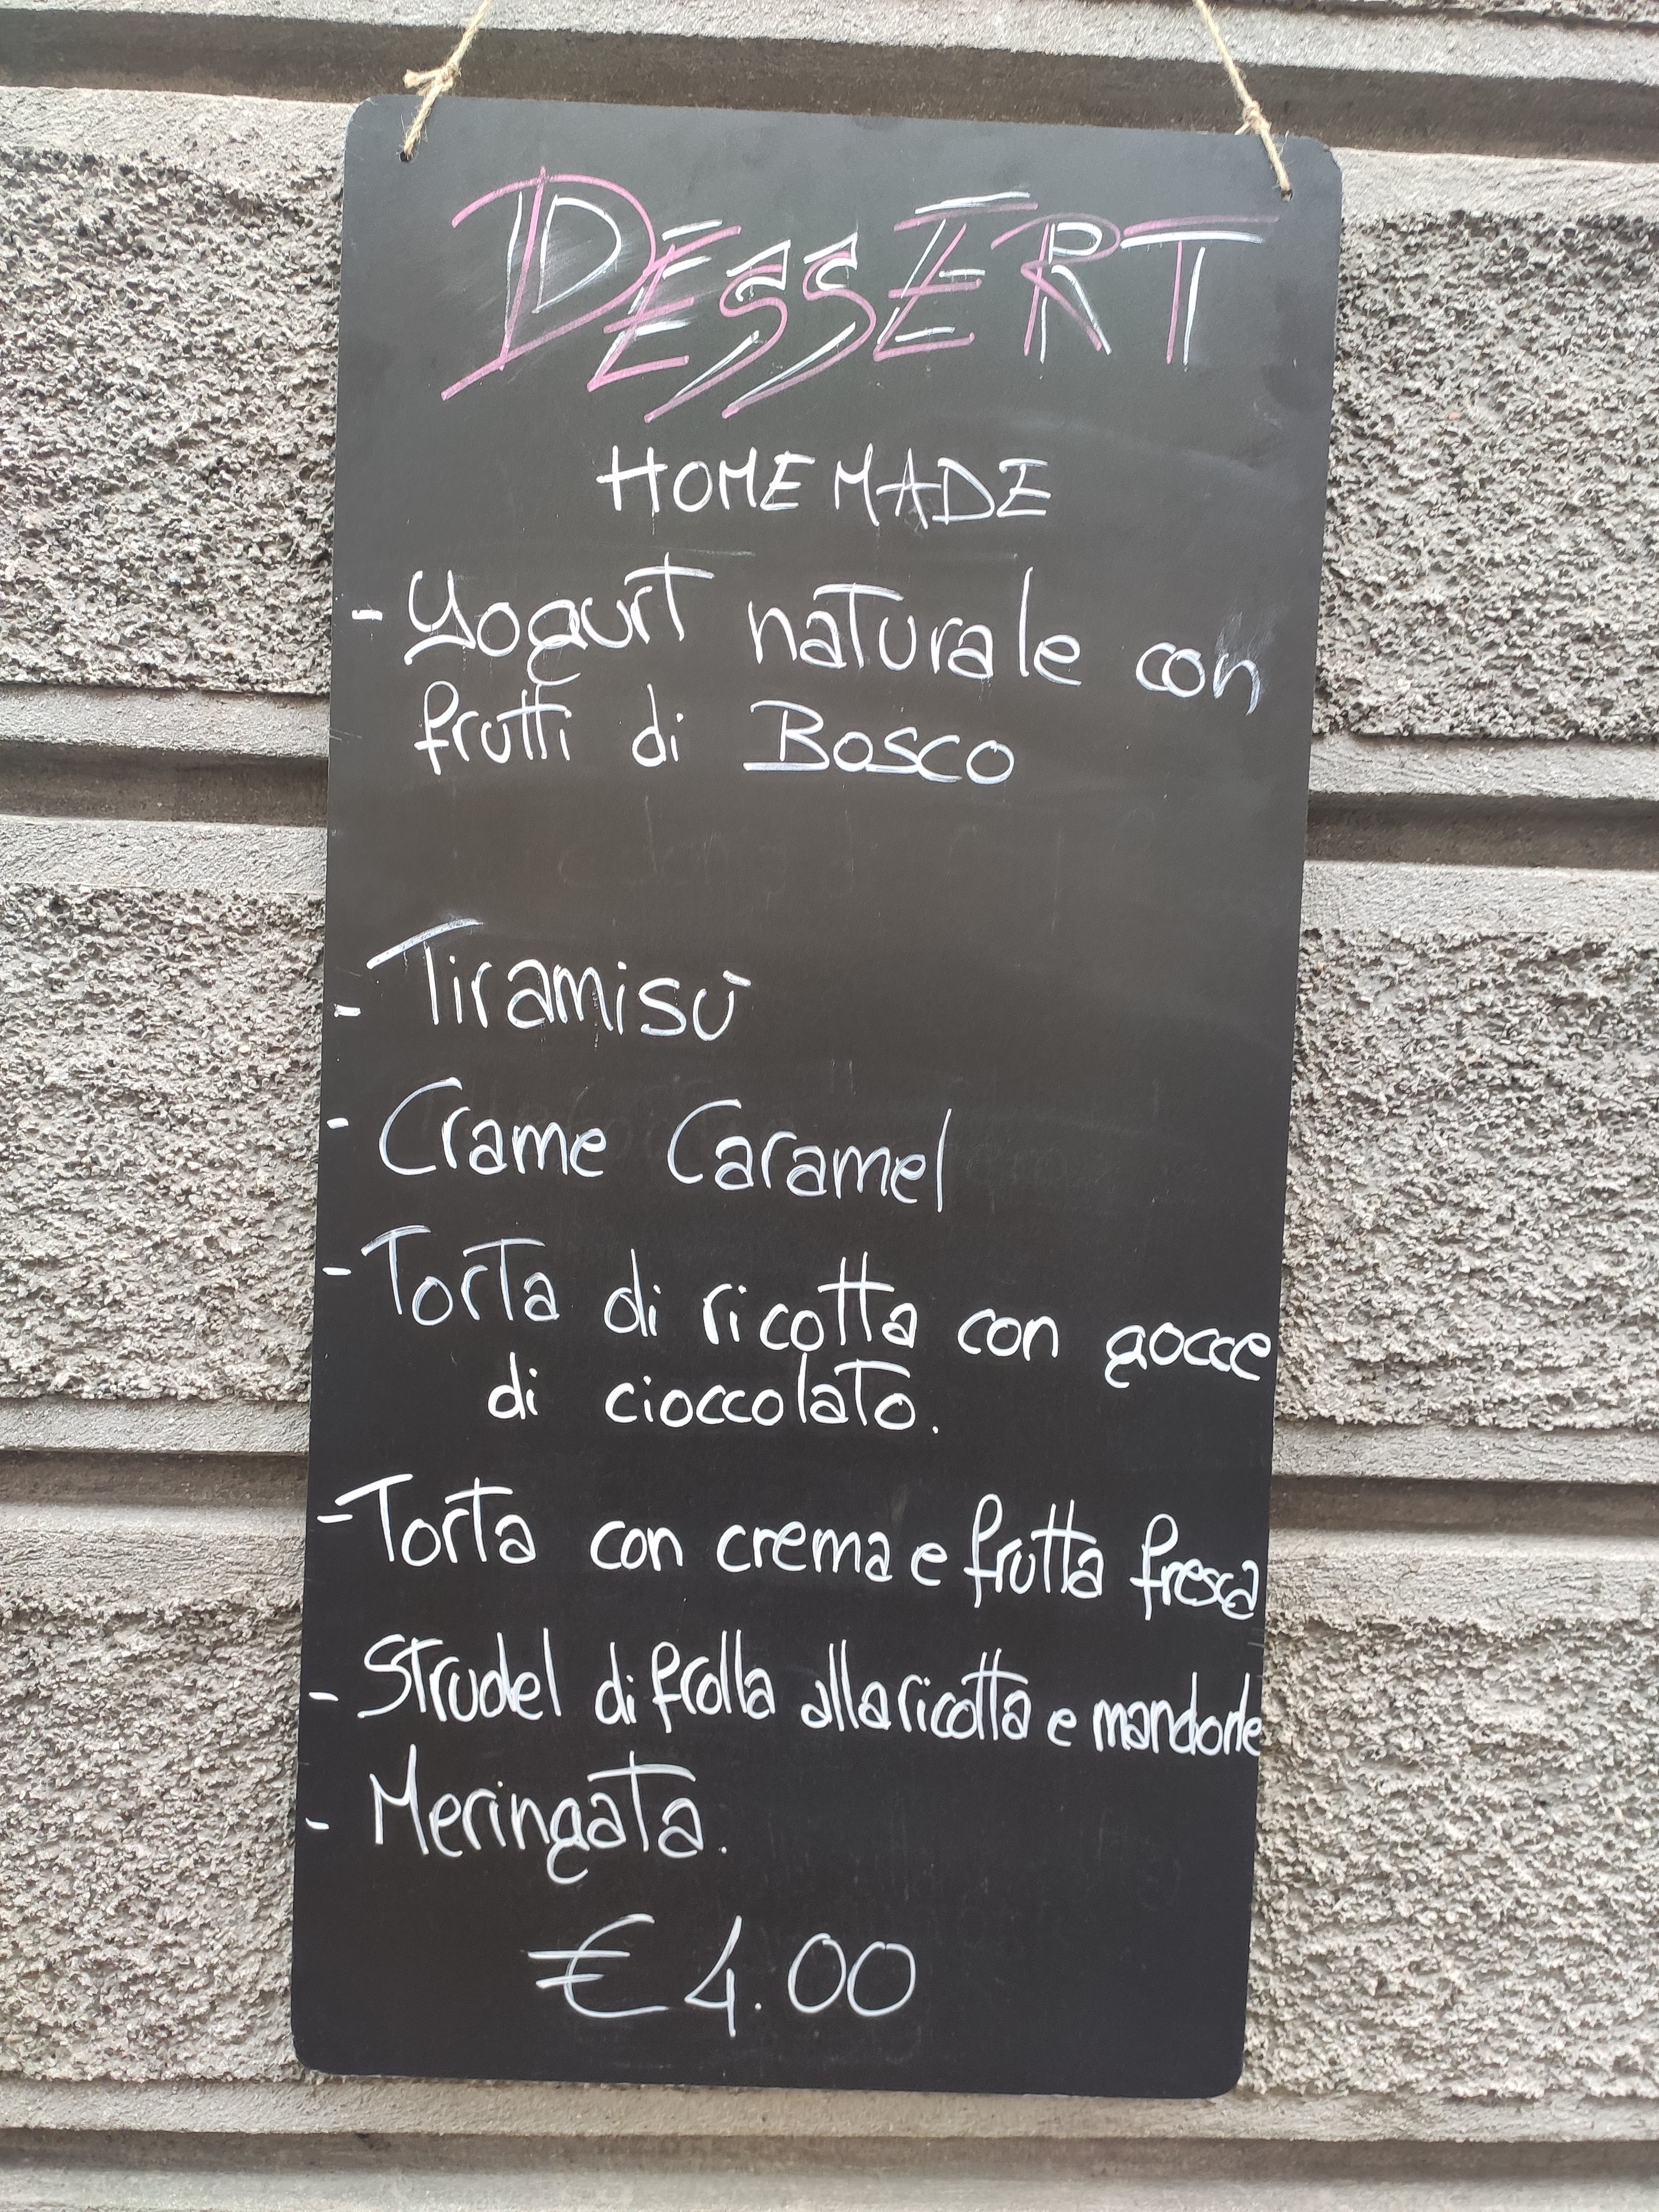 DESSERT
HOME MADE
- Yogurt naturale con
frutti di Bosco
- Tiramisù
- Crame Caramel
- Torta di ricotta con gocce
di cioccolato.
- Torta con crema e frutta fresca
- Strudel di frolla alla ricotta e mandorle
- Meringata.
€ 4.00